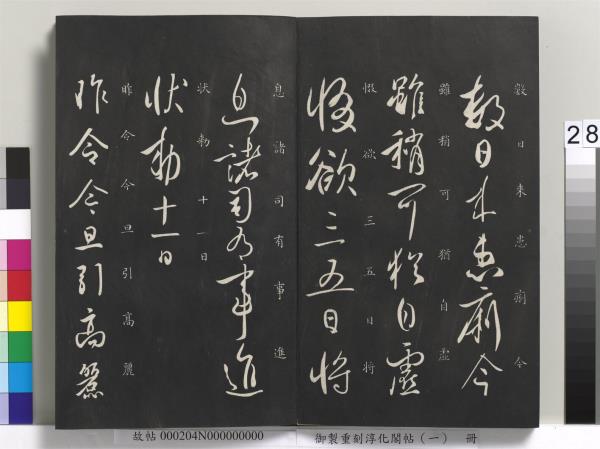 數日來患痢今
穀日來患痢今
雖稍可猶自虛
雖稍可猶自虛
惙欲三五日將
惙欲三五日將
息諸司有事進
息諸司有事進
狀敕十一日
狀敕十一日
昨令今旦引高麗
昨令今旦引高麗
故帖 000204N000000000
御製重刻淳化閣帖(一) 冊
28